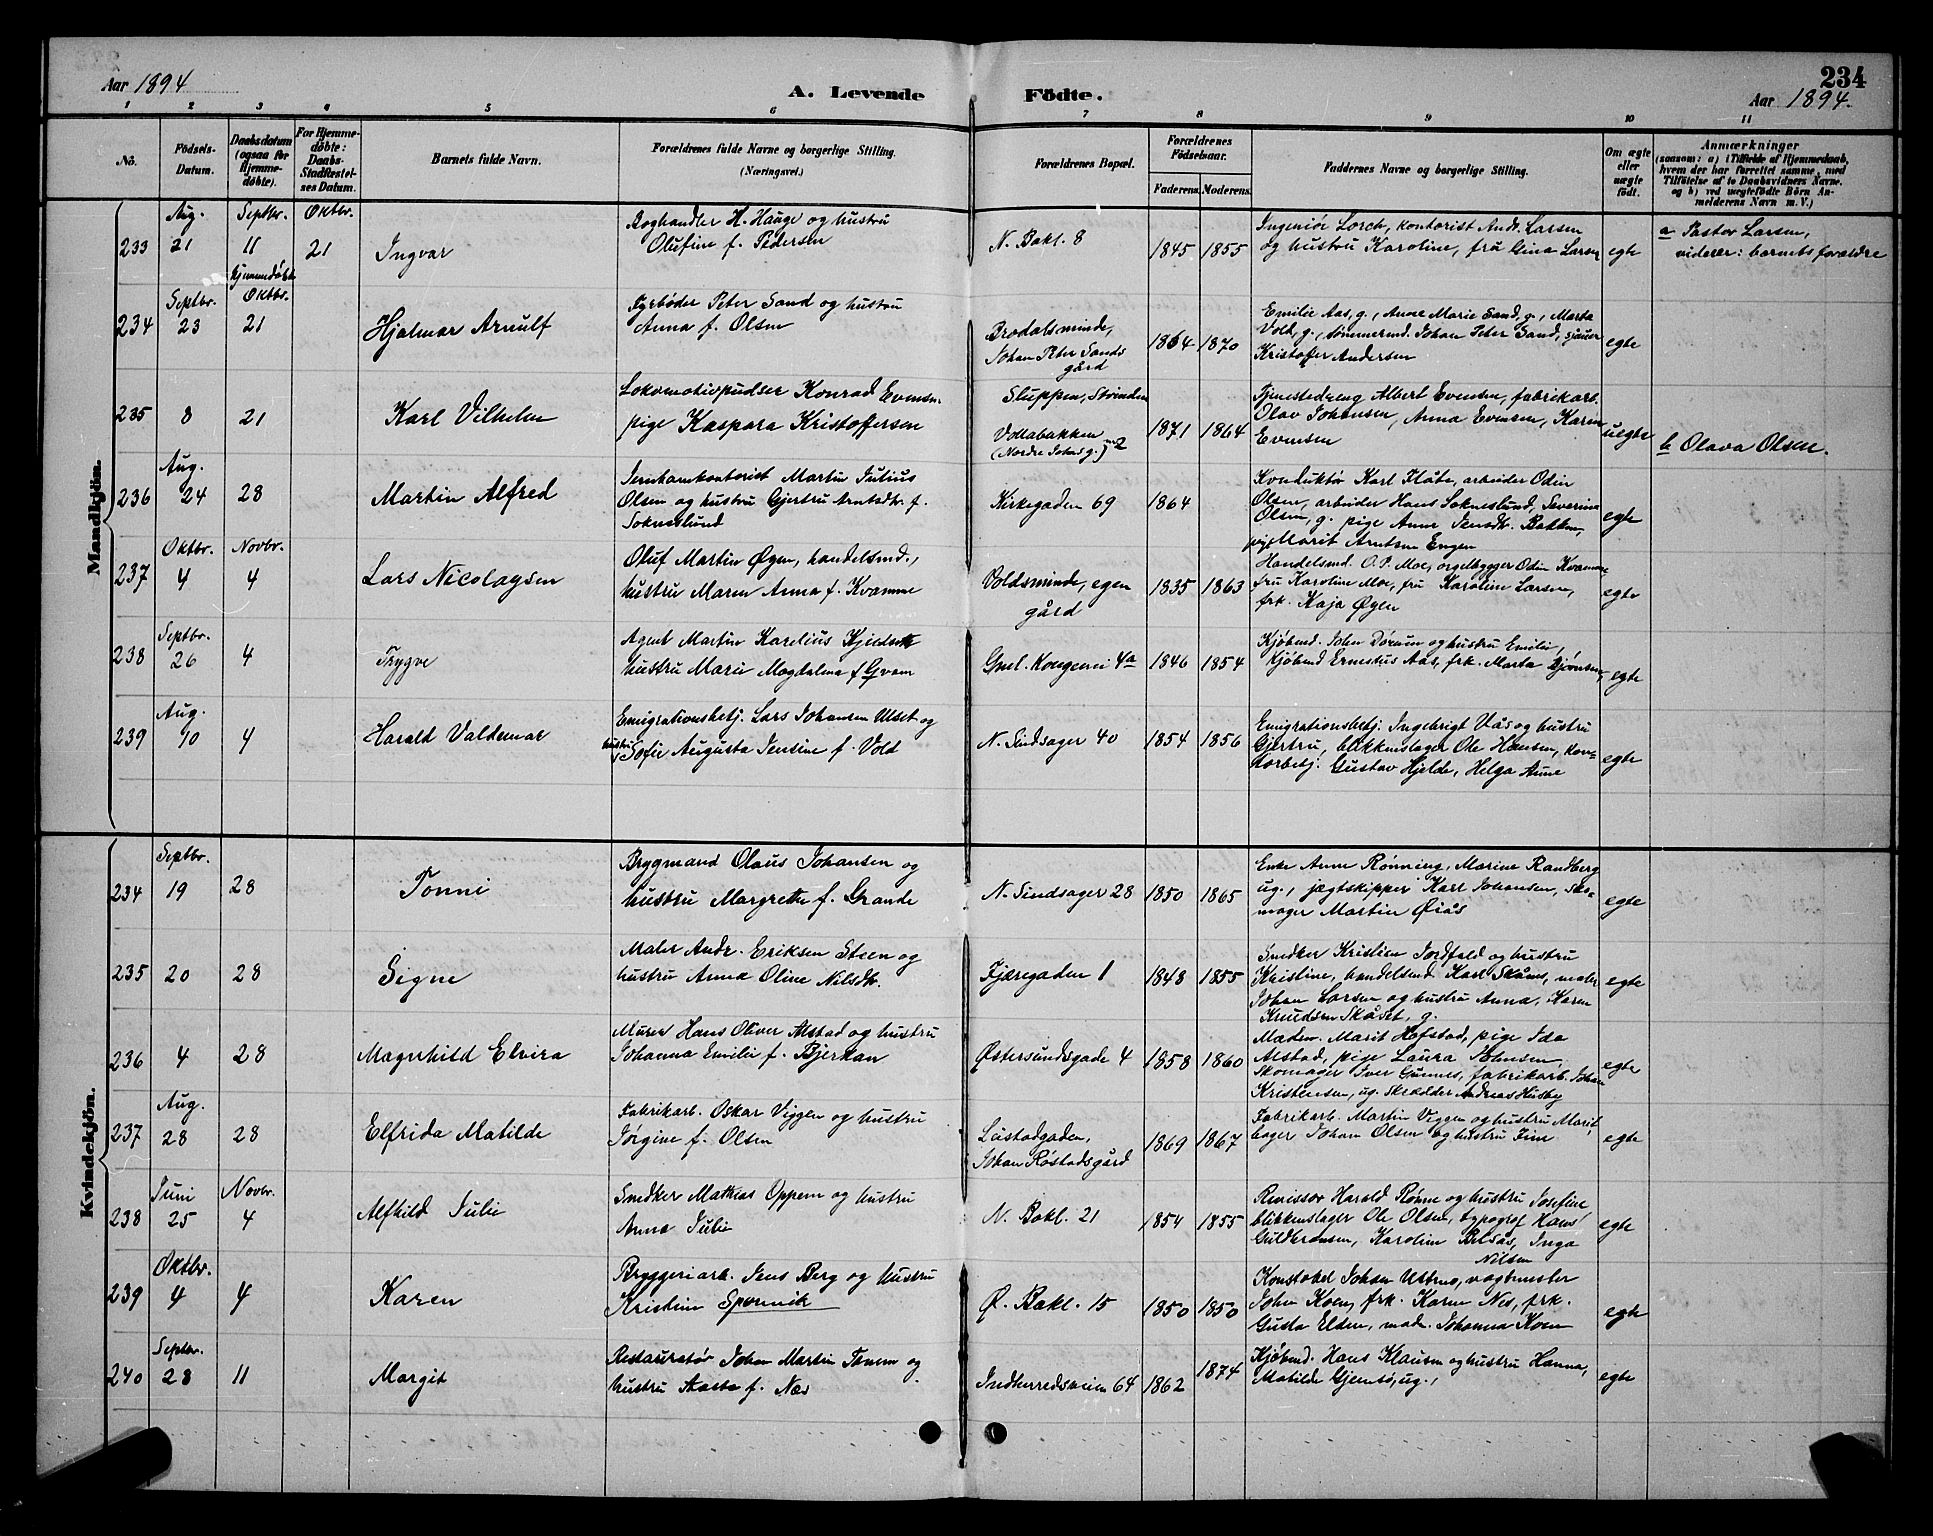 Aar 1894
A. Levende
Födte.
234
Aar 1894.
1 2 3 4 5 6 7 8 9 10 11
No.
Födsels-Datum.
Daabsdatum (ogsaa for Hjemme-döbte).
For Hjemme-döbte: Daabs-Stadfæstel-ses Datum.
Barnets fulde Navn.
Forældrenes fulde Navne og borgerlige Stilling.
(Næringsvei.)
Forældrenes Bopæl.
Forældrenes Födselsaar.
Faderens. Moderens.
Faddernes Navne og borgerlige Stilling.
Om ægte eller uægte födt.
Anmærkninger
(saasom: a) i Tilfælde af Hjemmedaab,
hvem der har forrettet samme, med
Tilföielse af to Daabsvidners Navne,
og b) ved uægtefödte Börn An-
melderens Navn m. V.)
Mandkjön.
233
Aug. 21
Septbr. 11
Hjemmedöbt
Oktbr. 21
Ingvar
Boghandler H. Hauge og hustru
Olufine f. Pedersen
N. Bakl. 8
1845 1855
Ingeniør Lorch, kontorist Andr. Larsen
og hustru Karoline, fru Gina Larsen
egte
a Pastor Larsen,
viderer: barnets forældre
234
Septbr. 23
Oktbr. 21
Hjalmar Arnulf
Fyrbøder Peter Sand og hustru
Anna f. Olsen
Brodalsminde,
Johan Peter Sands
gård
1864 1870
Emilie Aas, g., Anne Marie Sand, g., Marta
Volb, g., tømmermd. Johan Peter Sand, sjauer
Kristoffer Andersen
egte
235
8
21
Karl Vilhelm
Lokomotivpudser Konrad Evensen
pige Kaspara Kristoffersen
Sluppen, Strinden
Vollabakken 2
(Nordre Johnsg.)
1871 1864
Tjenestedreng Albert Evensen, fabrikarb.
Olav Johansen, Anna Evensen, Karin
Evensen
uegte
b Olava Olsen.
236
Aug. 24
28
Martin Alfred
Jernbankontorist Martin Julius
Olsen og hustru Gjertru Arntsdtr. f.
Sokneslund
Kirkegaden 69
1864
Konduktør Karl Flåte, arbeider Odin
Olsen, arbeider Hans Sokneslund, Severine
Olsen, g. pige Anne Jensdtr. Bakken,
pige Marit Arntsen Engen
egte
237
Oktbr. 4
Novbr. 4
Lars Nicolaysen
Oluf Martin Øyen, handelsmd.,
hustru Maren Anna f. Kvamme
Voldsminde, egen
gård
1835 1863
Handelsmd. O. P. Moe, orgelbygger Odin Kvamme
fru Karoline Moe, fru Karoline Larsen,
frk. Kaja Øyen
egte
238
Septbr. 26
4
Trygve
Agent Martin Karelius
hustru Marie Magdalena f.
Gml. Kongevei 4a
1846 1854
Kjøbmd. John Dørum og hustru Emilie,
Kjøbmd Ernestus Aas, frk. Marta Bjørnsen,
egte
239
Aug. 10
4
Harald Valdemar
Emigrationsbetj. Lars Johansen Ulset og
hustru Sofie Augusta Jensine f. Volt
N. Sindsager 40
1854 1856
Emigrationsbetj. Ingebrigt Vås og hustru
Gjertru, blikkenslager Ole Hansen, kon-
torbetj. Gustav Hjelde, Helga Aune
egte
Kvindekjön.
234
Septbr. 19
28
Tonni
Brygmand Olaus Johansen og
hustru Margrethe f. Grande
N. Sindsager 28
1850 1865
Enke Anne Rønning, Marine Randberg
ug., jægtskipper Karl Johansen, sko-
mager Martin Øiås
egte
235
20
28
Signe
Maler Andr. Eriksen Steen og
hustru Anna Oline Nilsdtr.
Fjæregaden 1
1848 1855
Snedker Kristian Jordfald og hustru
Kristine, handelsmd. Karl Skåns, maler
Johan Larsen og hustru Anna, Karen
Knudsen Skåset, g.
egte
236
4
28
Magnhild Elvira
Murer Hans Oliver Alstad og hustru
Johanna Emilie f. Bjerkan
Østersundsgade 4
1858 1860
Madam. Marit Hofstad, pige Ida
Alstad, pige Laura
Skomager Iver Gunnes, fabrikarb. Johan
Kristensen, ug. Skrædder Andreas Husby
egte
237
Aug. 28
28
Elfrida Matilde
Fabrikarb. Oskar Viggen og hustru
Jørgine f. Olsen
Ladstadgaden,
Johan Røstadsgård
1869 1867
Fabrikarb. Martin Viggen og hustru Marit,
bager Johan Olsen og hustru Fine
egte
238
Juni 25
Novbr. 4
Alfhild Julie
Snedker Mathias Oppem og hustru
Anna Julie
N. Bakl. 21
1854 1855
Revissor Harald Rønne og hustru Josefine
blikkenslager Ole Olsen, typograf Hans
Guldbransen, Karoline Belsås, Inga
Nilsen
egte
239
Oktbr. 4
4
Karen
Bryggeriarb. Jens Berg og hustru
Kristine Spornvik
Ø. Bakl. 15
1850 1850
Konstabel Johan Uttmo, vagtmester
John Koen, frk. Karen Nes, frk.
Gusta Elden, mad. Johanna Koen
egte
240
Septbr. 28
11
Margit
Restauratør Johan Martin Tanem og
hustru Aasta f. Næs
Indherredsveien 64
1862 1874
Kjøbmd. Hans Klausen og hustru Hanna,
Matilde Gjemsø, ug.,
egte